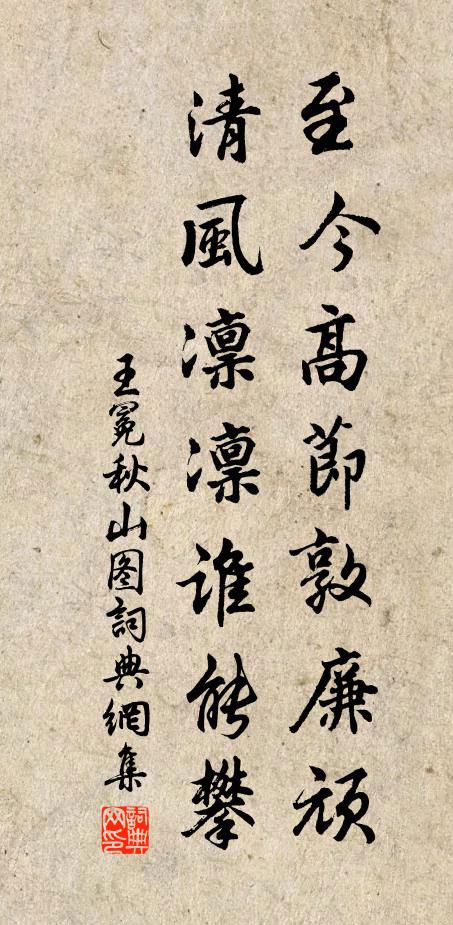 至今高節敦廉頑
清風凛凛谁能攀
王冕秋山图詞典網集
詞典網印